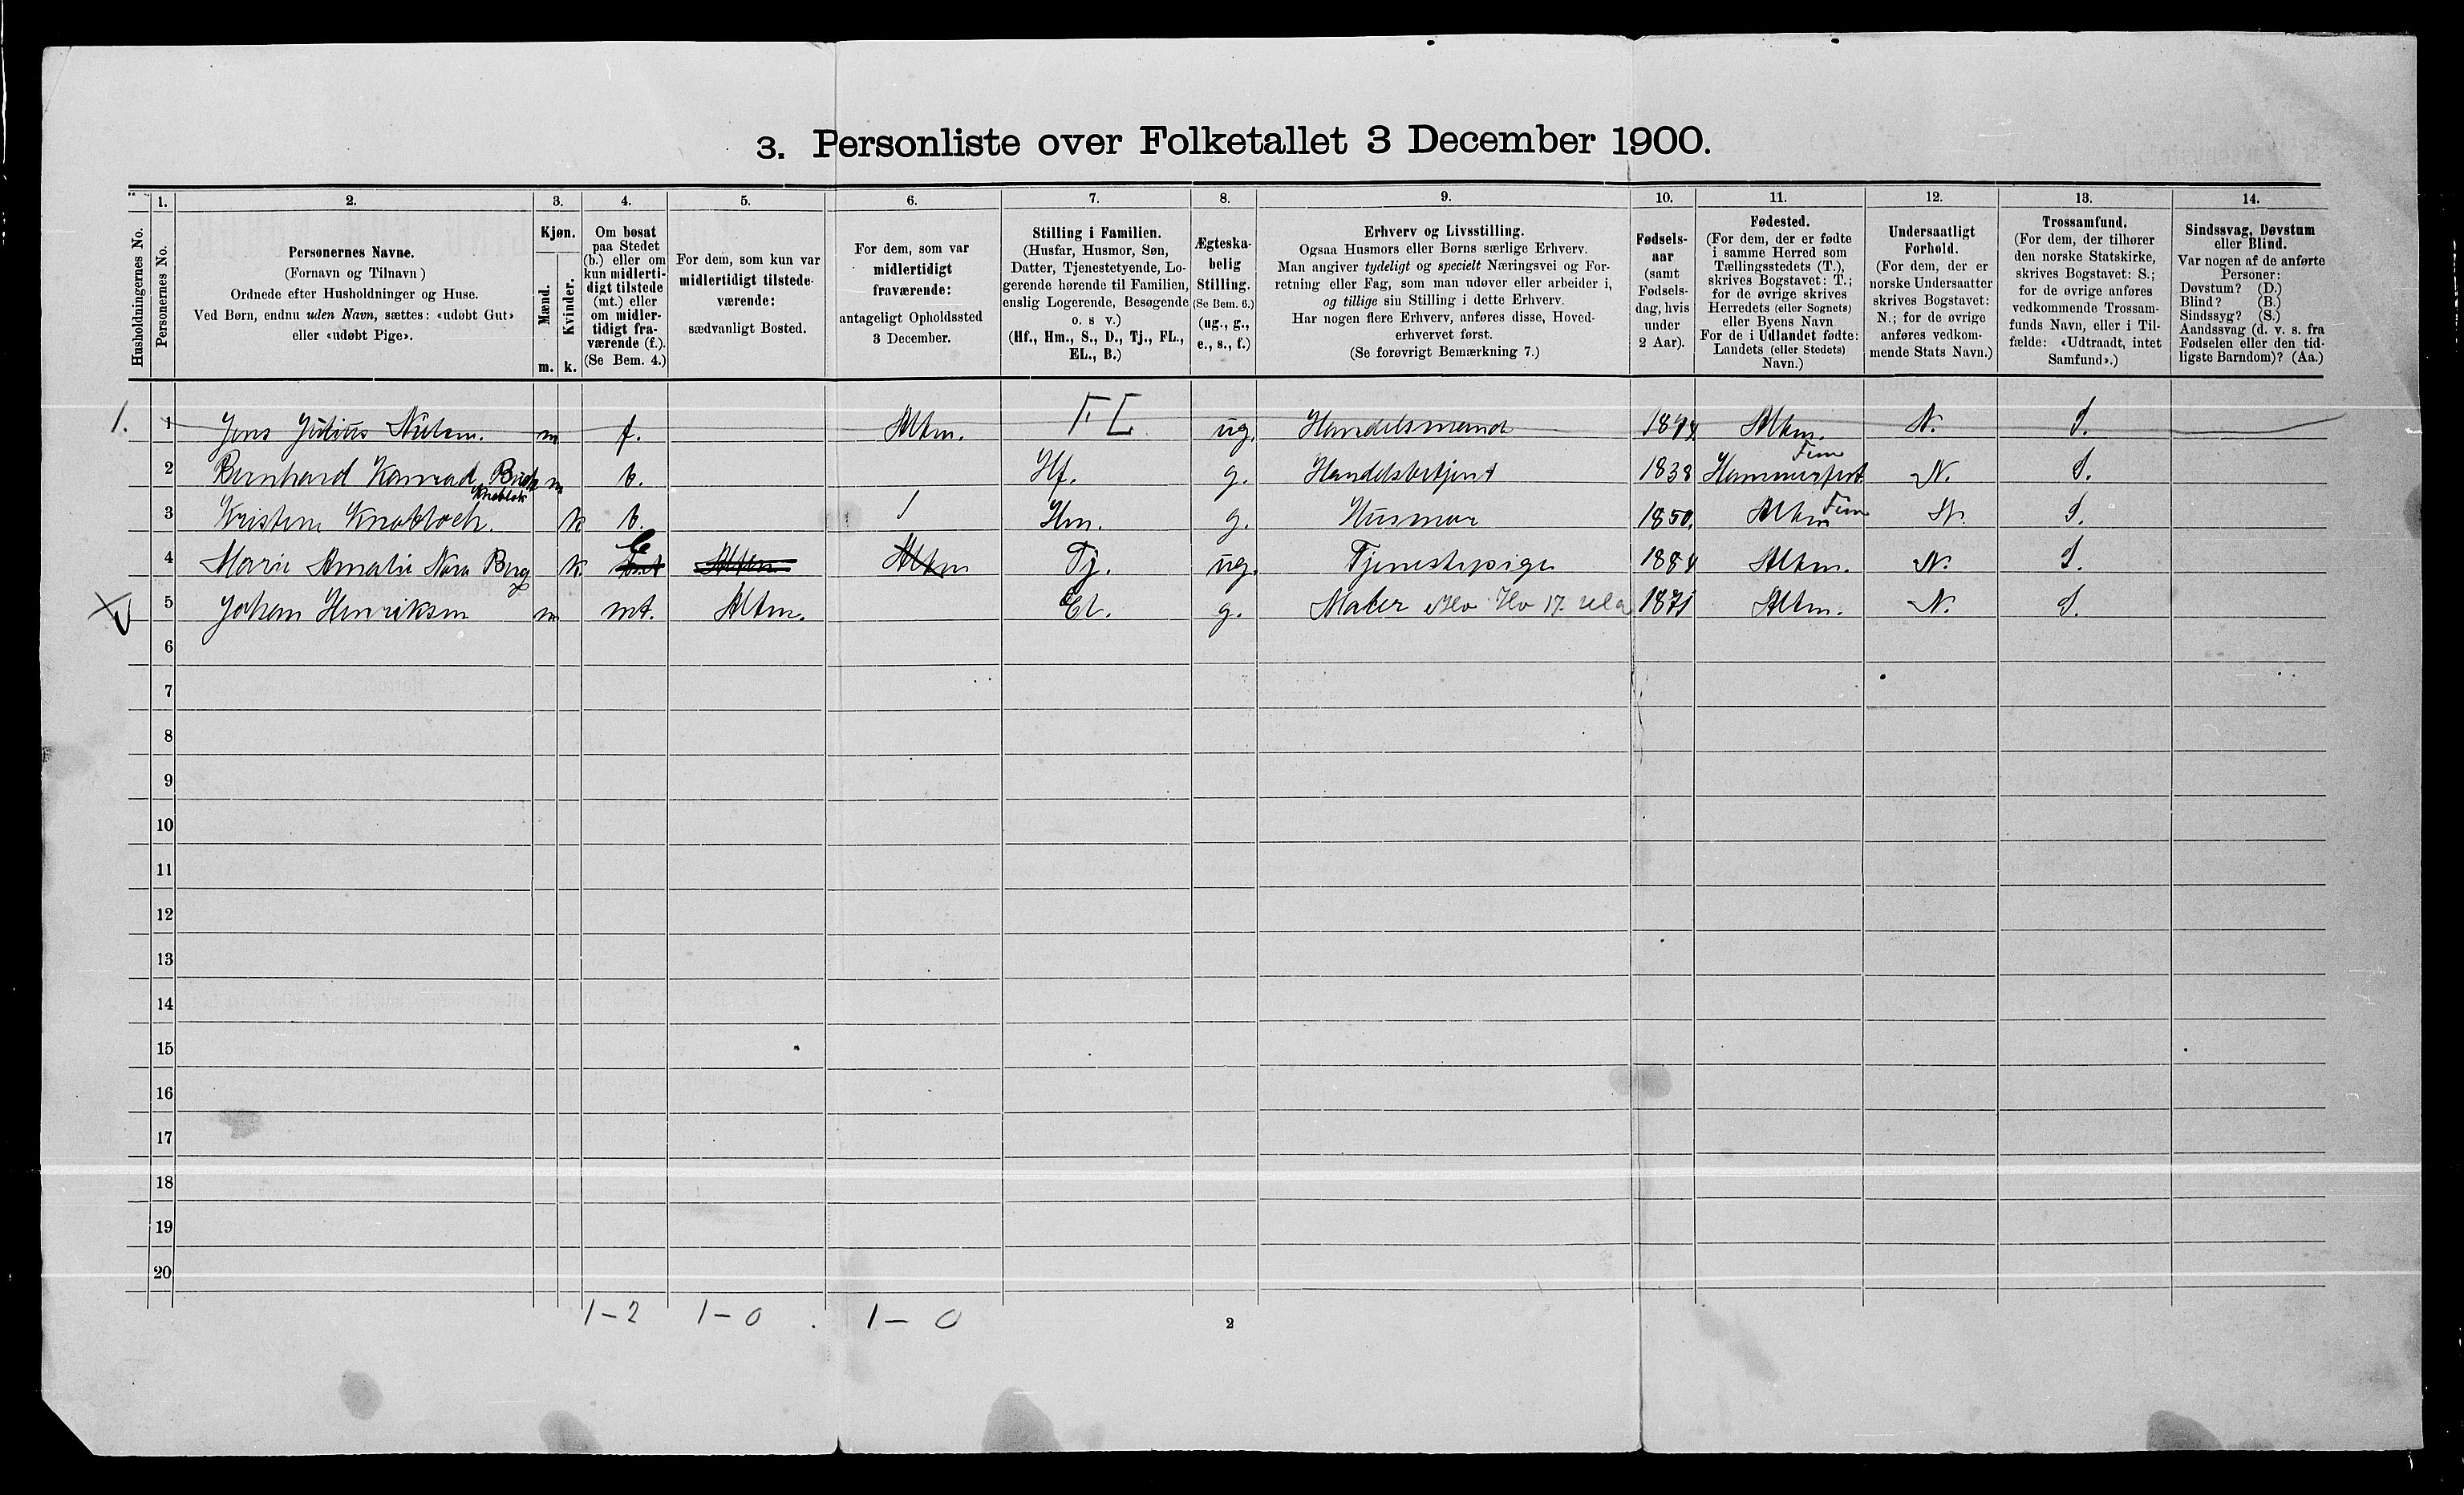 3. Personliste over Folketallet 3 December 1900.
Husholdningernes No.
1.
Personernes No.
2.
Personernes Navne.
(Fornavn og Tilnavn)
Ordnede efter Husholdninger og Huse.
Ved Børn, endnu uden Navn, sættes: «udøbt Gut»
eller «udøbt Pige».
3.
Kjøn.
Mænd.
Kvinder.
m. k.
4.
Om bosat
paa Stedet
(b.) eller om
kun midlerti-
digt tilstede
(mt.) eller
om midler-
tidigt fra-
værende (f.).
(Se Bem. 4.)
5.
For dem, som kun var
midlertidigt tilstede-
værende:
sædvanligt Bosted.
6.
For dem, som var
midlertidigt
fraværende:
antageligt Opholdssted
3 December.
7.
Stilling i Familien.
(Husfar, Husmor, Søn,
Datter, Tjenestetyende, Lo-
gerende hørende til Familien,
enslig Logerende, Besøgende
o. s v.)
(Hf., Hm., S., D., Tj., FL.,
EL., B.)
8.
Ægteska-
belig
Stilling.
(Se Bem. 6.)
(ug., g.,
e., s., f.)
9.
Erhverv og Livsstilling.
Ogsaa Husmors eller Børns særlige Erhverv.
Man angiver tydeligt og specielt Næringsvei og For-
retning eller Fag, som man udøver eller arbeider i,
og tillige sin Stilling i dette Erhverv.
Har nogen flere Erhverv, anføres disse, Hoved-
erhvervet først.
(Se forøvrigt Bemærkning 7.)
10.
Fødsels-
aar
(samt
Fødsels-
dag, hvis
under
2 Aar).
11.
Fødested.
(For dem, der er fødte
i samme Herred som
Tællingsstedets (T.),
skrives Bogstavet: T.;
for de øvrige skrives
Herredets (eller Sognets)
eller Byens Navn
For de i Udlandet fødte:
Landets (eller Stedets)
Navn.)
12.
Undersaatligt
Forhold.
(For dem, der er
norske Undersaatter
skrives Bogstavet:
N.; for de øvrige
anføres vedkom-
mende Stats Navn.)
13.
Trossamfund.
(For dem, der tilhører
den norske Statskirke,
skrives Bogstavet: S.;
for de øvrige anføres
vedkommende Trossam-
funds Navn, eller i Til-
fælde: «Udtraadt, intet
Samfund».)
14.
Sindssvag, Døvstum
eller Blind.
Var nogen af de anførte
Personer:
Døvstum? (D.)
Blind? (B.)
Sindssyg? (S.)
Aandssvag (d. v. s. fra
Fødselen eller den tid-
ligste Barndom)? (Aa.)
1. 1 Jens Julius Nielsen. m f. Alten. FL ug. Handelsmand Alten. N. S.
2 Bernhard Konrad Knoblok m b. Hf. g. Handelsbetjent 1838 Hammerfest Finm N. S.
3 Kristine Knobloch. k b. Hm. g. Husmor 1850. Alten Finm N. S.
4 Marie Amalie Nora Berg k b Alten Alten Tj. ug. Tjenestepige 1884 Alten. N. S.
5 Johan Henriksen m mt. Alten. El. g. Maler 1871 Alten. N. S.
6
7
8
9
10
11
12
13
14
15
16
17
18
19
20
1-2 1-0 1-0
2